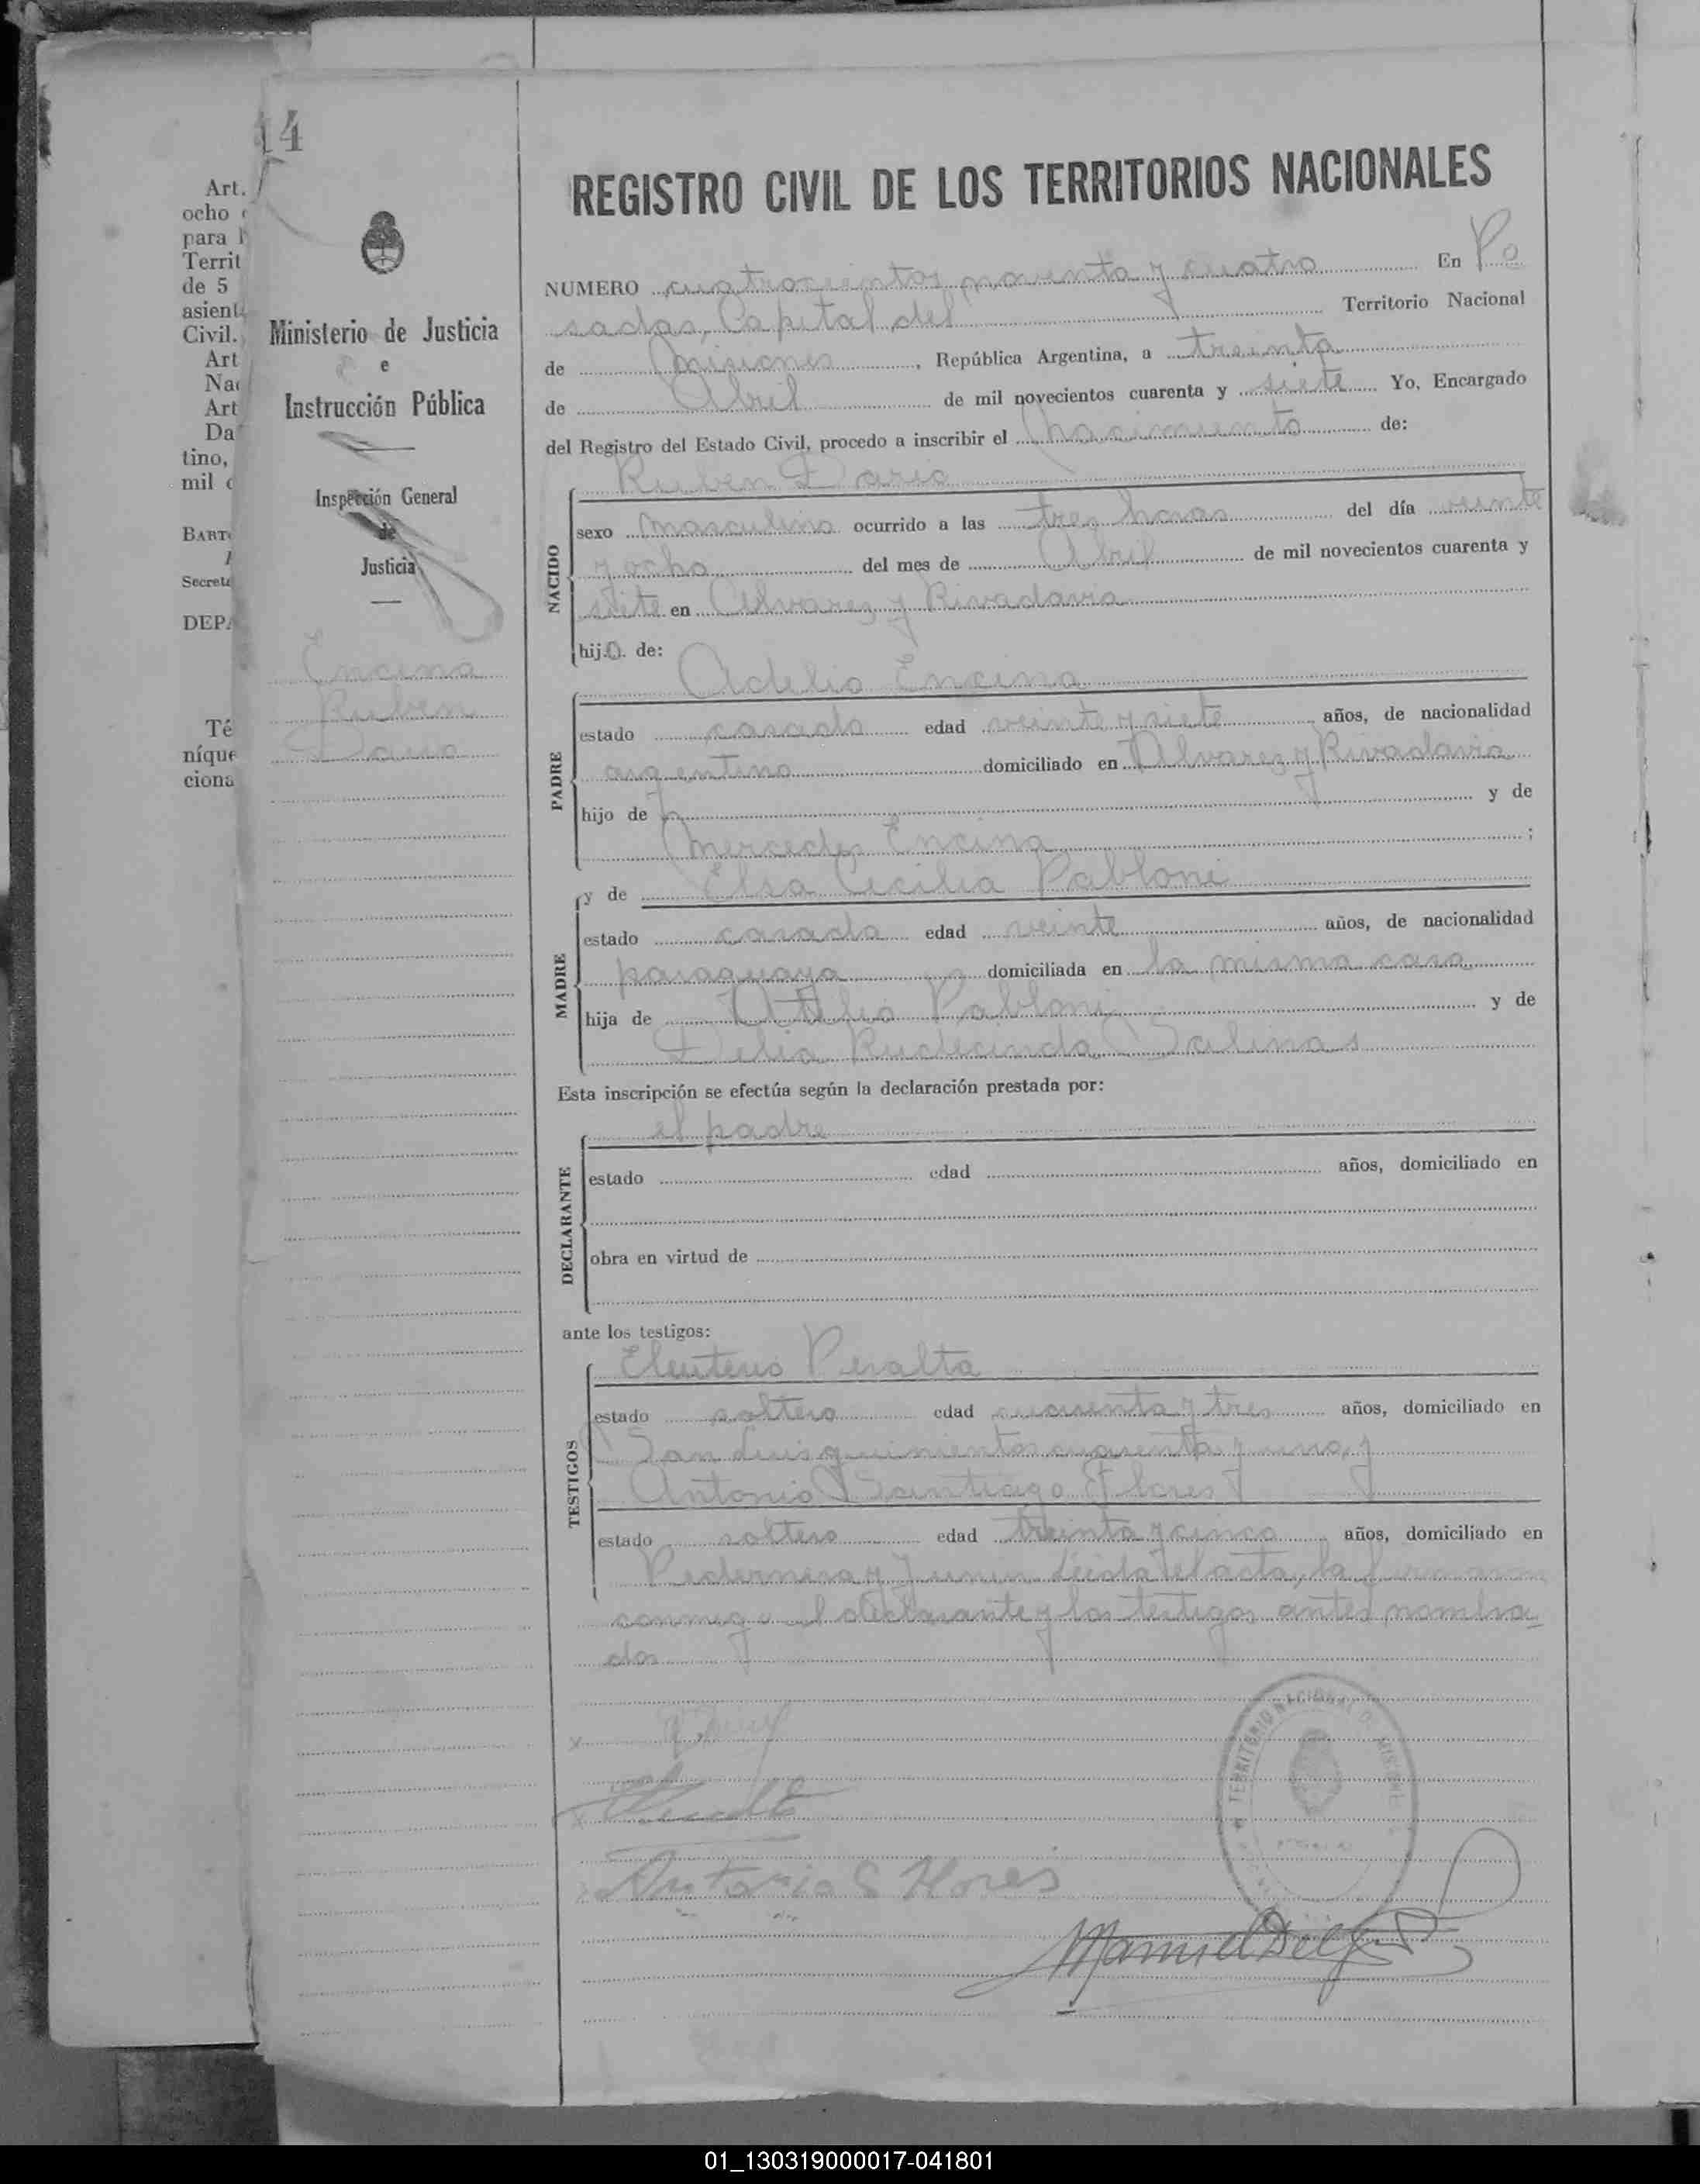 14
Art.
ocho
para
Territ
de 5
asient
Civil.
Art
Na
Art
Da
tino,
mil
BART
Secret
DEP.
Té
níque
ciona
Ministerio de Justicia
e
Instrucción Pública
Inspección General
de
Justicia
Encina
Ruben
Dario
REGISTRO CIVIL DE LOS TERRITORIOS NACIONALES
NUMERO cuatrocientos noventa y cuatro En Po
sadas, Capital del Territorio Nacional
de Misiones, República Argentina, a treinta
de Abril de mil novecientos cuarenta y siete Yo, Encargado
del Registro del Estado Civil, procedo a inscribir el nacimiento de:
Ruben Dario
NACIDO
sexo masculino ocurrido a las tres horas del día veinte
y ocho del mes de Abril de mil novecientos cuarenta y
siete en Alvarez y Rivadavia
hijo de:
Adelio Encina
PADRE
estado casado edad veinte y siete años, de nacionalidad
argentino domiciliado en Alvarez y Rivadavia
hijo de y de
Mercedes Encina ;
y de Elsa Cecilia Pabloni
MADRE
estado casada edad veinte años, de nacionalidad
paraguaya domiciliada en la misma casa
hija de Atilio Pabloni y de
Delia Rudecinda Salinas
Esta inscripción se efectúa según la declaración prestada por:
el padre
DECLARANTE
estado edad años, domiciliado en
obra en virtud de
ante los testigos:
Eleuterio Peralta
TESTIGOS
estado soltero edad cuarenta y tres años, domiciliado en
San Luis quinientos cuarenta y uno, y
Antonio Santiago Flores
estado soltero edad treinta y cinco años, domiciliado en
Pedernera y Junin. Leida el acta, la firmaron
conmigo el declarante y los testigos antes nombra
dos
Antonio S Flores
TERRITORIO NACIONAL DE MISIONES
01_130319000017-041801